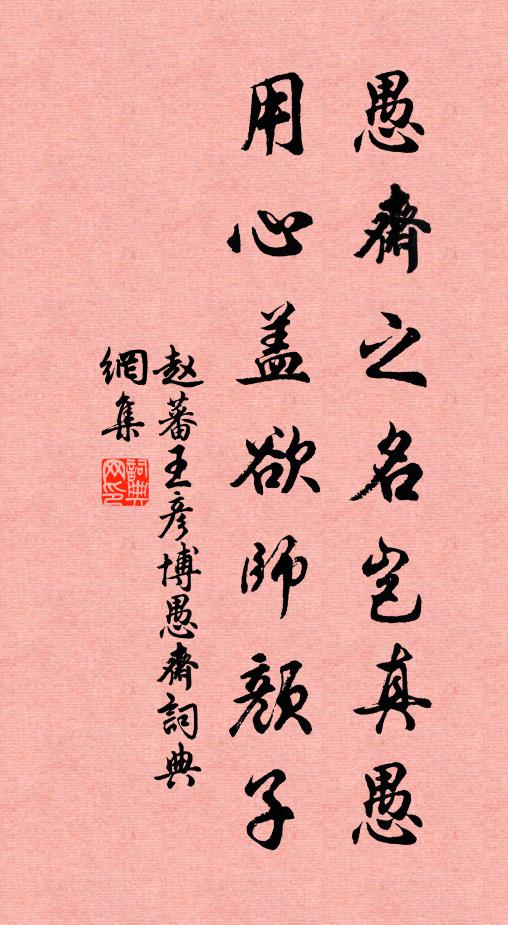 愚齋之名岂真愚
用心盖欲師顔子
赵蕃王彦博愚齋詞典
網集
詞典网印